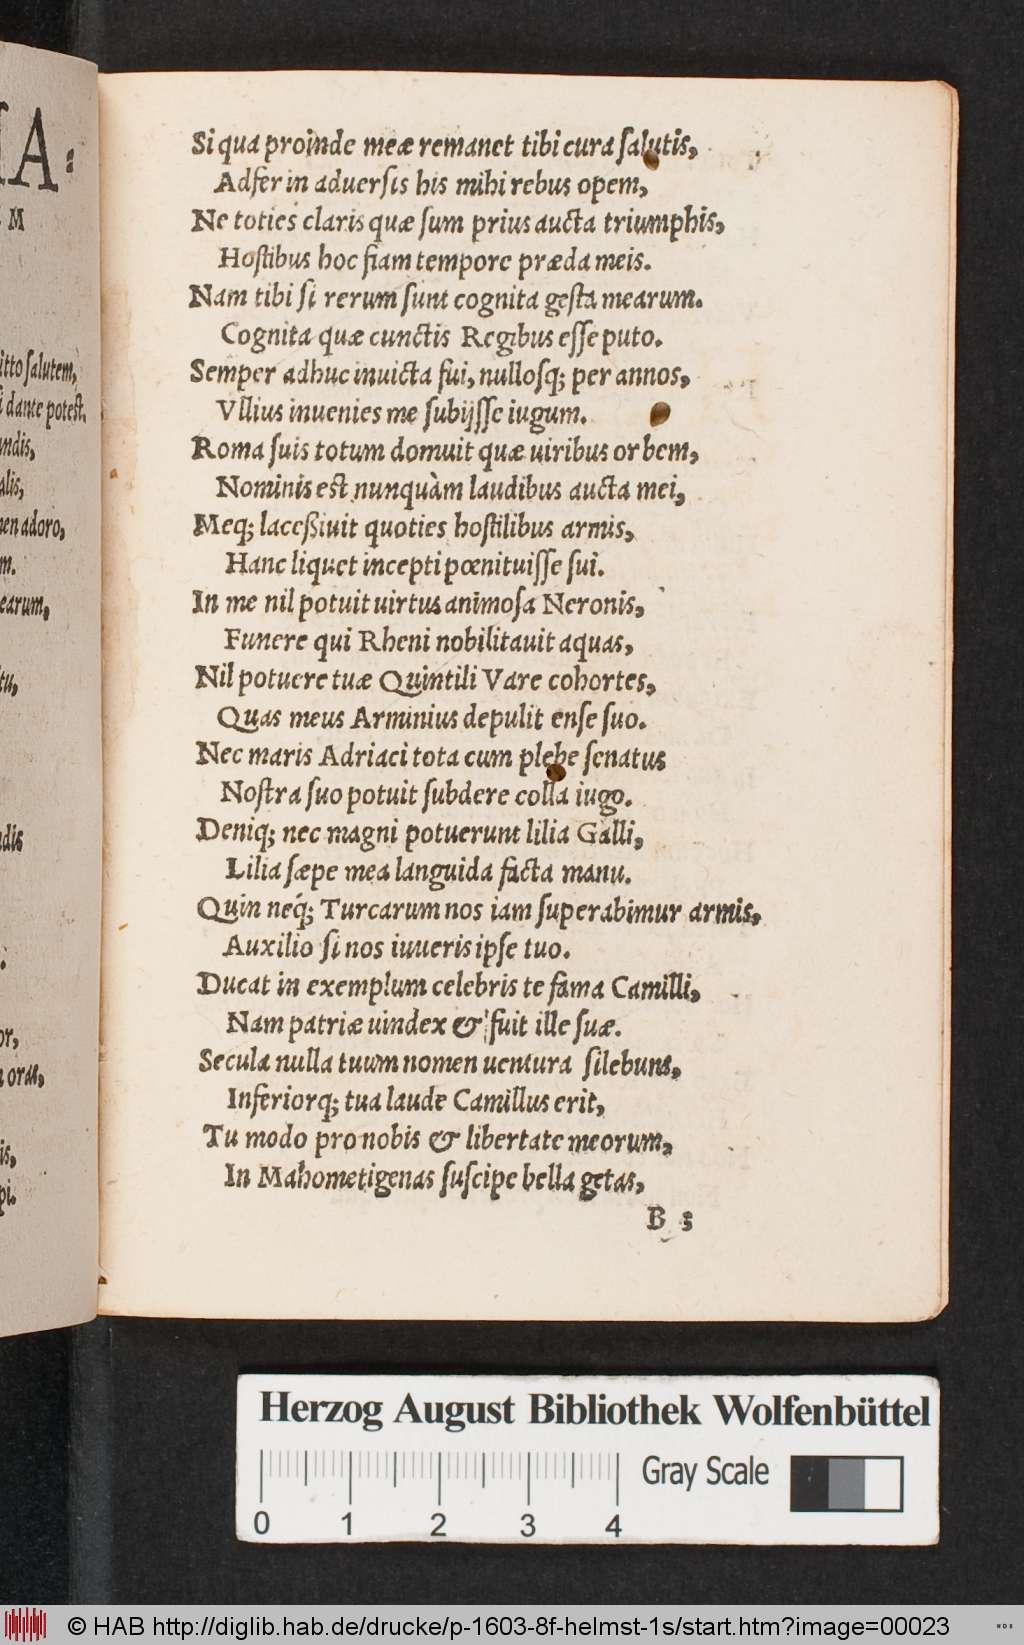 IA:
M
itto salutem,
i dante potest.
undis,
alis,
men adoro,
m.
earum,
tu,
udis
or,
n oras,
is,
pi.
Si qua proinde meæ remanet tibi cura salutis,
Adfer in aduersis his mihi rebus opem,
Ne toties claris quæ sum prius aucta triumphis,
Hostibus hoc fiam tempore præda meis.
Nam tibi si rerum sunt cognita gesta mearum.
Cognita quæ cunctis Regibus esse puto.
Semper adhuc inuicta fui, nullosq; per annos,
Vllius inuenies me subijsse iugum.
Roma suis totum domuit quæ uiribus orbem,
Nominis est nunquàm laudibus aucta mei,
Meq; laceßiuit quoties hostilibus armis,
Hanc liquet incepti pœnituisse sui.
In me nil potuit uirtus animosa Neronis,
Funere qui Rheni nobilitauit aquas,
Nil potuere tuæ Quintili Vare cohortes,
Quas meus Arminius depulit ense suo.
Nec maris Adriaci tota cum plebe senatus
Nostra suo potuit subdere colla iugo.
Deniq; nec magni potuerunt lilia Galli,
Lilia sæpe mea languida facta manu.
Quin neq́; Turcarum nos iam superabimur armis,
Auxilio si nos iuueris ipse tuo.
Ducat in exemplum celebris te fama Camilli,
Nam patriæ uindex & fuit ille suæ.
Secula nulla tuum nomen uentura silebunt,
Inferiorq; tua laude Camillus erit,
Tu modo pro nobis & libertate meorum,
In Mahometigenas suscipe bella getas,
B 5
Herzog August Bibliothek Wolfenbüttel
Gray Scale
0 1 2 3 4
© HAB http://diglib.hab.de/drucke/p-1603-8f-helmst-1s/start.htm?image=00023